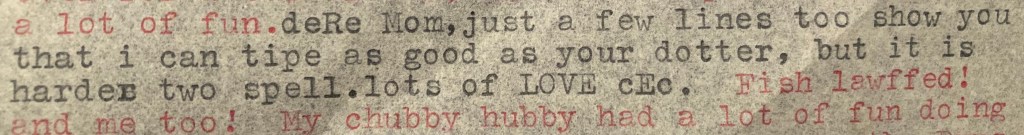 a lot of fun.deRe Mom,just a few lines too show you
that i can tipe as good as your dotter, but it is
harder two spell.lots of LOVE cEc.  Fish lawffed!
and me too!  My chubby hubby had a lot of fun doing